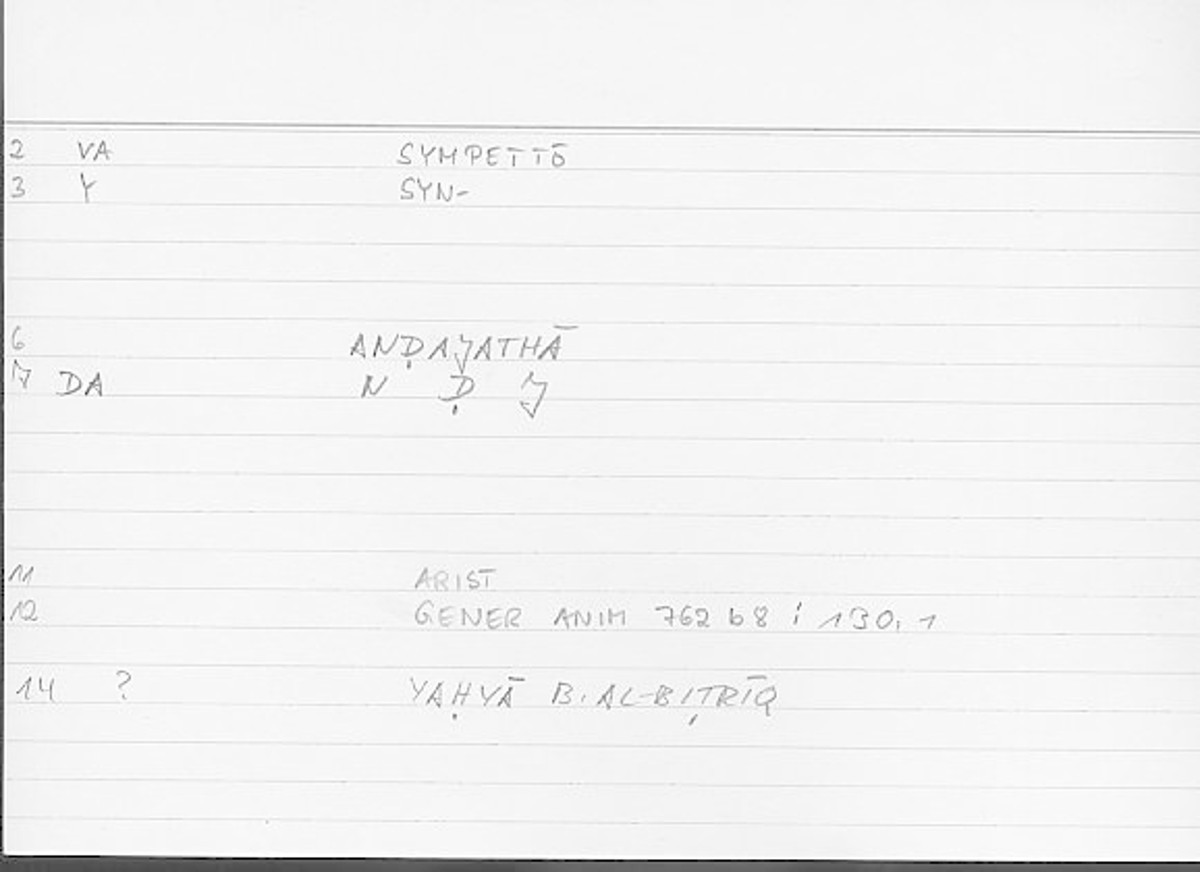 2 VA SYMPETTŌ
3 Y SYN-
6 ANḌAJATHĀ
7 DA N Ḍ J
11 ARIST
12 GENER ANIM 762 b 8 ; 130,1
14 ? YAḤYĀ B. AL-BIṬRĪQ